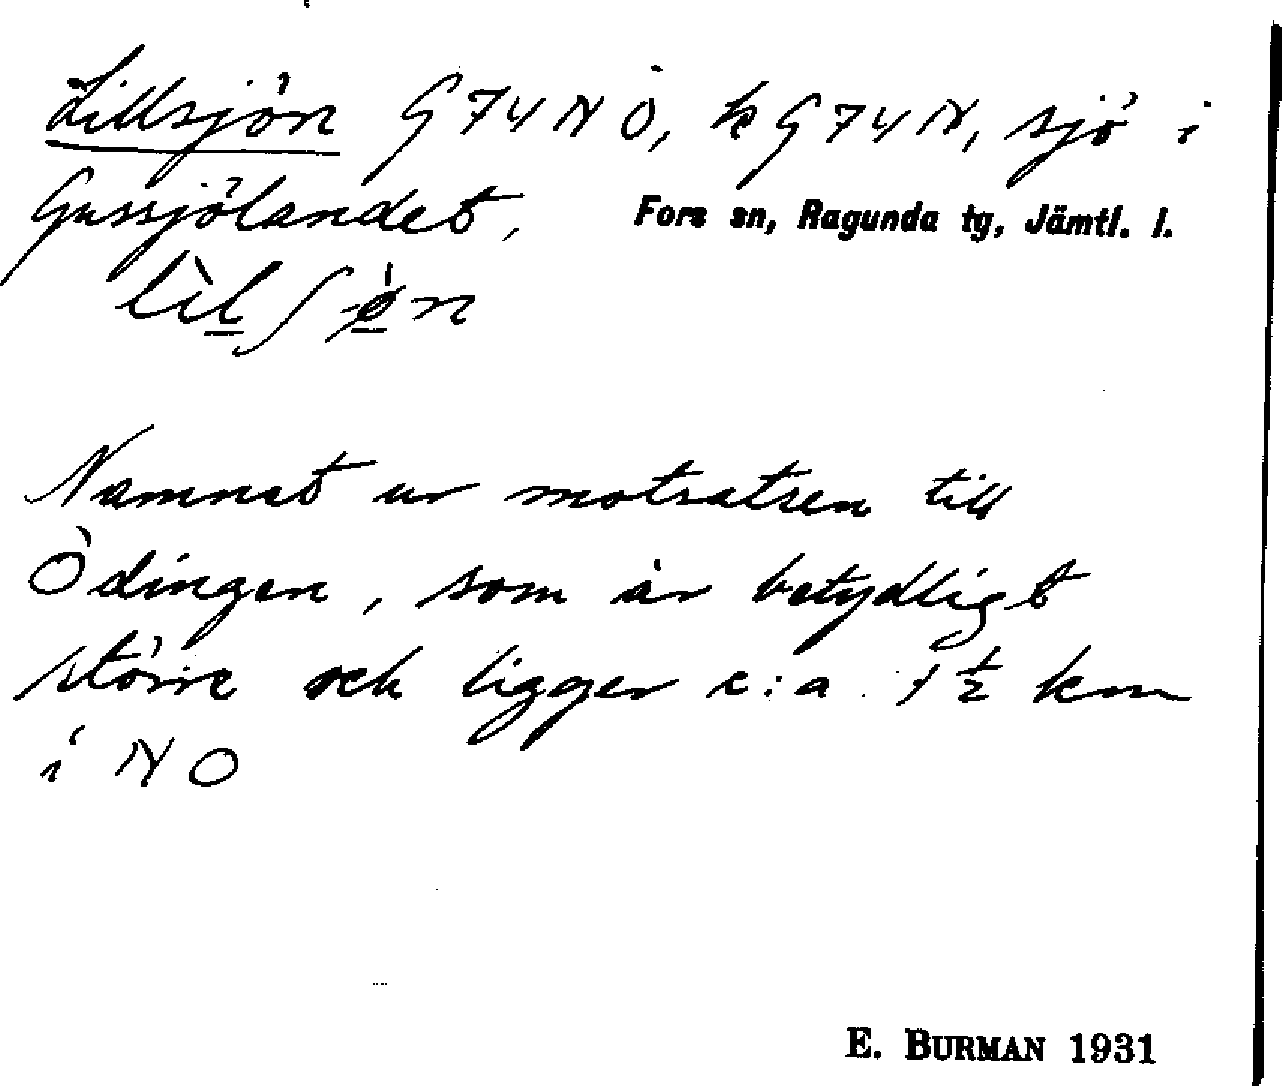 Lillsjön G 74 N Ö, k G 74 N, sjö i
Gussjölandet, Fors sn, Ragunda tg, Jämtl. l.
Namnet ur motsatsen till
Ödingen, som är betydligt
större och ligger c:a 1 ½ km
i N O
E. BURMAN 1931